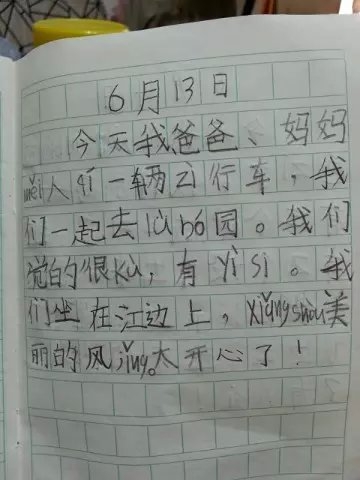 6月13日
今天我爸爸、妈妈
měi人qí一辆云行车,我
们一起去lù bó园。我们
觉的很kù,有yì si。我
们坐在江边上,xiǎng shòu美
丽的风jǐng。太开心了!